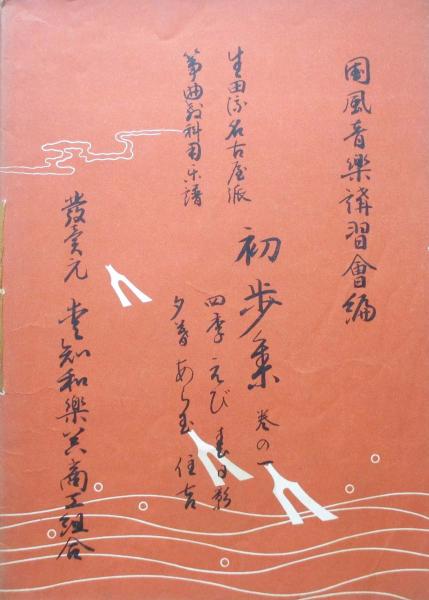 国風音樂講習會編
生田流名古屋派
箏曲教科用樂譜
初歩集 巻の一
四季 えび 春日影
夕暮 あら玉 住吉
發賣元 愛知和樂器商工組合